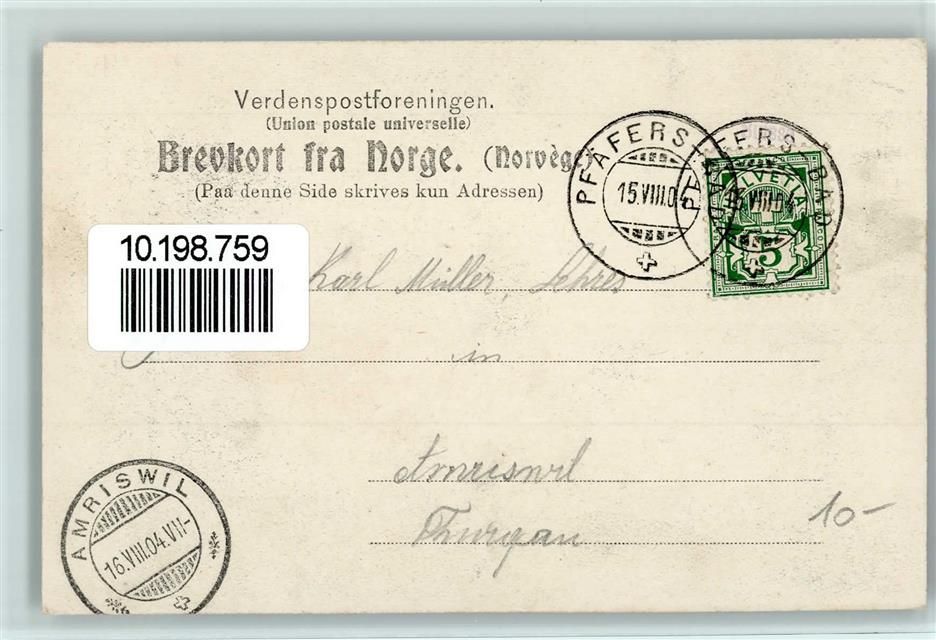 Verdenspostforeningen.
(Union postale universelle)
Brevkort fra Norge. (Norvège)
(Paa denne Side skrives kun Adressen)
PFÄFERS BAD
15.VIII.04
PFÄFERS BAD
15.VIII.04
HELVETIA
5
10.198.759
Karl Müller,
in
Amriswil
Thurgau
10-
AMRISWIL
16.VIII.04.VII-